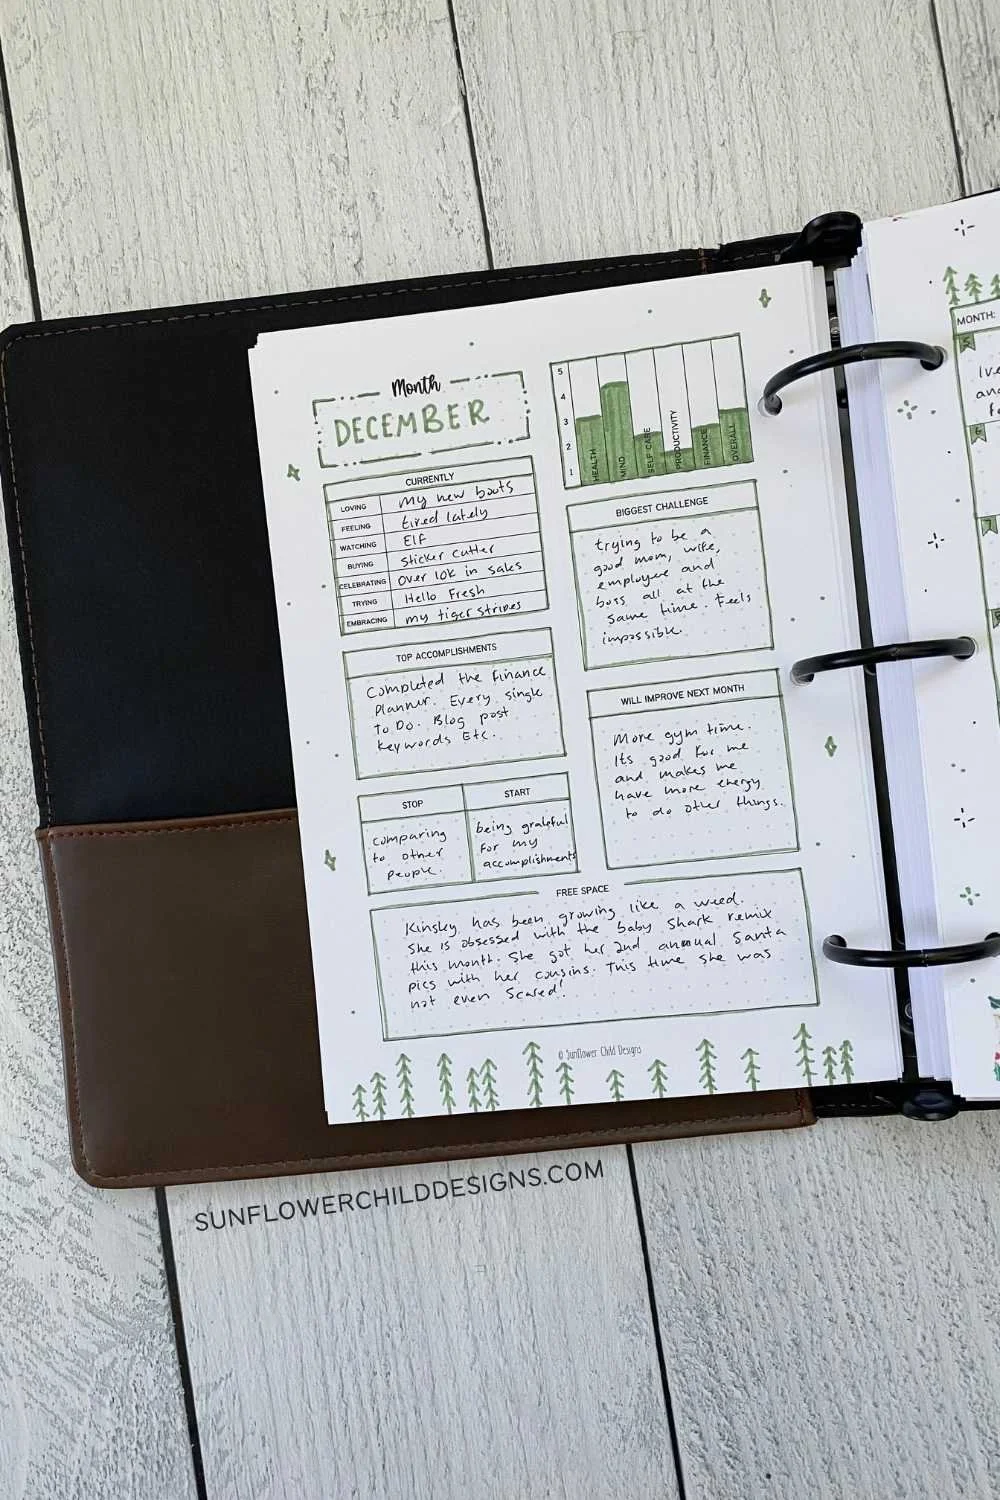 Month
DECEMBER
CURRENTLY
LOVING my new boots
FEELING tired lately
WATCHING Elf
BUYING sticker cutter
CELEBRATING over 10k in sales
TRYING Hello Fresh
EMBRACING my tiger stripes
TOP ACCOMPLISHMENTS
Completed the finance
planner. Every single
To Do. Blog post
keywords Etc.
STOP
comparing
to other
people.
START
being grateful
for my
accomplishments
5
4
3
2
1
HEALTH
MIND
SELF CARE
PRODUCTIVITY
FINANCE
OVERALL
BIGGEST CHALLENGE
trying to be a
good mom, wife,
employee and
boss all at the
same time. Feels
impossible.
WILL IMPROVE NEXT MONTH
More gym time.
Its good for me
and makes me
have more energy
to do other things.
FREE SPACE
Kinsley has been growing like a weed.
She is obsessed with the baby Shark remix
this month. She got her 2nd annual Santa
pics with her cousins. This time she was
not even scared!
© Sunflower Child Designs
MONTH:
5
Ive
6
7
SUNFLOWERCHILDDESIGNS.COM